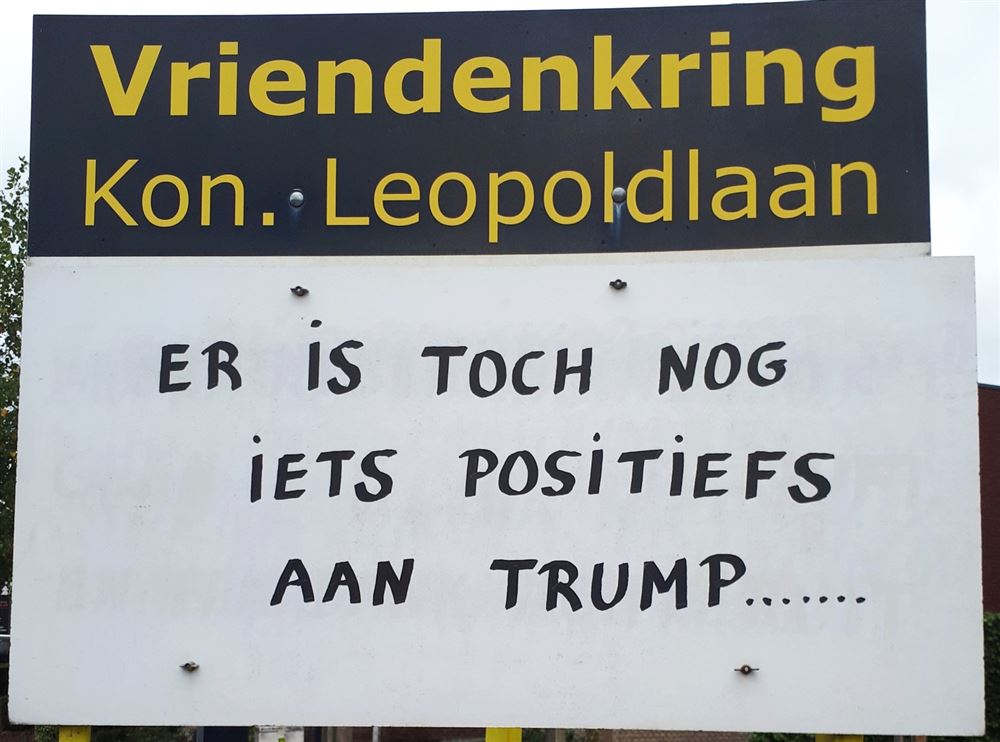 Vriendenkring
Kon. Leopoldlaan
ER IS TOCH NOG
IETS POSITIEFS
AAN TRUMP.......